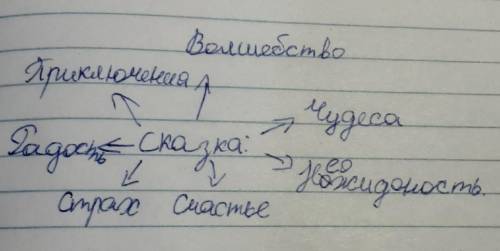 Волшебство
Приключения
Чудеса
Радость Сказка:
Неожидоность.
Страх Счастье